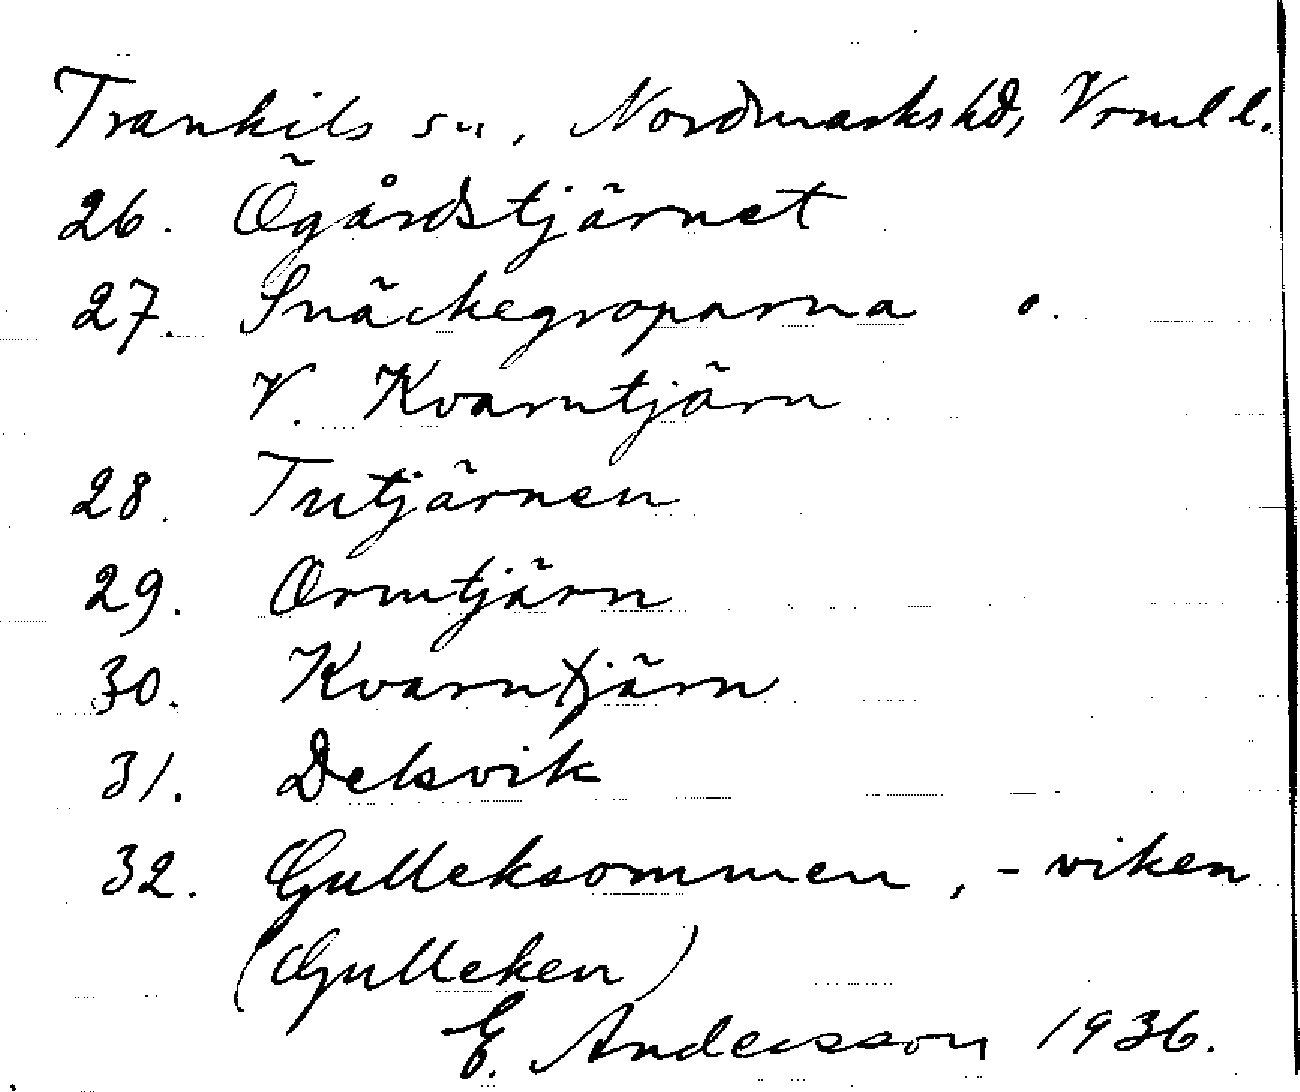 Trankils sn, Nordmarks hd, Vrml l.
26. Ögårdstjärnet
27. Snäckegroparna o.
V. Kvarntjärn
28. Tutjärnen
29. Ormtjärn
30. Kvarntjärn
31. Delsvik
32. Gulleksommen, -viken
(Gulleken)
E. Andersson 1936.